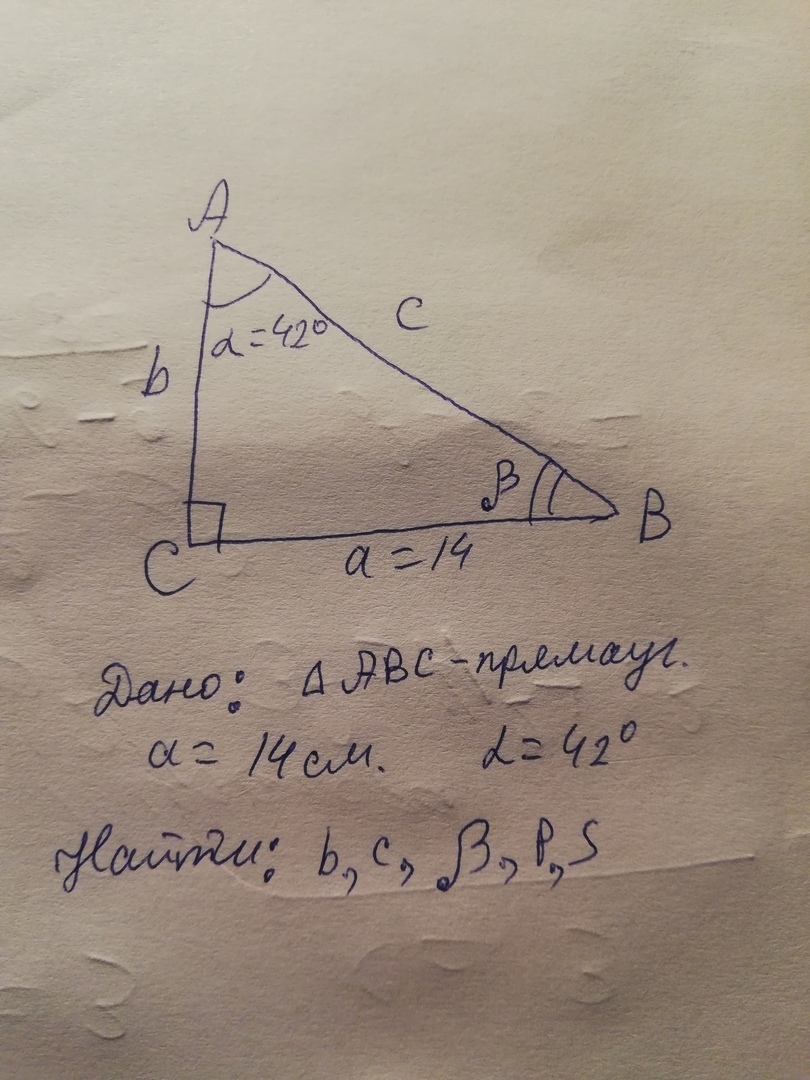 A
c
α=42°
b
β
B
C
a=14
Дано: Δ ABC - прямоуг.
a = 14 см. α = 42°
Найти: b, c, β, P, S